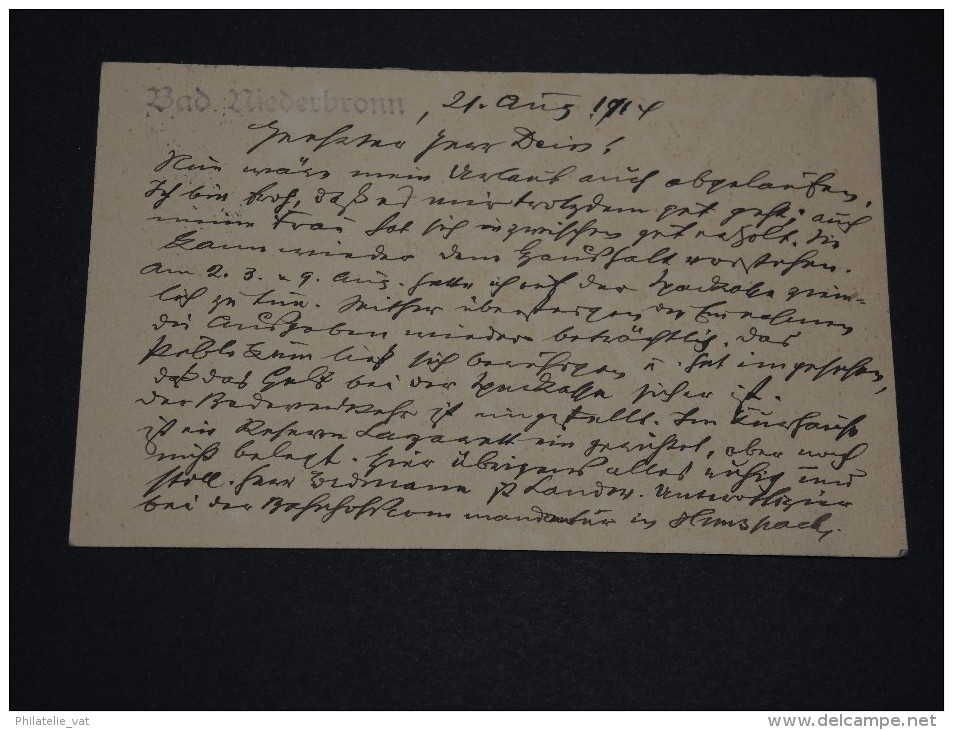 Bad Niederbronn, 21. Aug 1914
Geehrter Herr
Nun wäre mein Urlaub auch abgelaufen.
Ich bin froh, daß es mir trotzdem gut geht; auch
meine Frau hat sich inzwischen gut erholt. Sie
kann wieder dem Haushalt vorstehen.
Am 2. 3. u 9. Aug. hatte ich auf der Sparkasse ziem-
lich zu tun. Seither übersteigen die Einnahmen
die Ausgaben wieder beträchtlich. Das
Publikum ließ sich beruhigen u. hat eingesehen,
daß das Geld bei der Sparkasse sicher ist.
Der Badeverkehr ist eingestellt. Im Kurhause
ist ein Reserve Lazarett eingerichtet, aber noch
nicht belegt. Hier übrigens alles ruhig und
still. Herr ist Landw. Unteroffizier
bei der Bahnhofskommandantur in
Philatelie_vat
www.delcampe.net